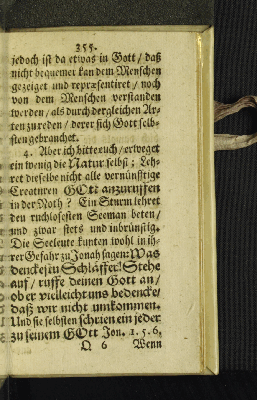 355.
jedoch ist da etwas in Gott / daß
nicht bequemer kan dem Menschen
gezeiget und repræsentiret / noch
von dem Menschen verstanden
werden / als durch dergleichen Ar-
ten zu reden / derer sich Gott selb-
sten gebrauchet.
4. Aber ich bitte euch / erweget
ein wenig die Natur selbst ; Leh-
ret dieselbe nicht alle vernünfftige
Creaturen GOtt anzuruffen
in der Noth ? Ein Sturm lehret
den ruchlosesten Seeman beten /
und zwar stets und inbrünstig.
Die Seeleute kunten wohl in ih-
rer Gefahr zu Jonah sagen: Was
denckestu Schläffer! Stehe
auf / ruffe deinen Gott an /
ob er vielleicht uns bedencke /
daß wir nicht umkommen.
Und sie selbsten schrien ein jeder
zu seinem GOtt Jon. 1. 5. 6.
Q 6 Wenn